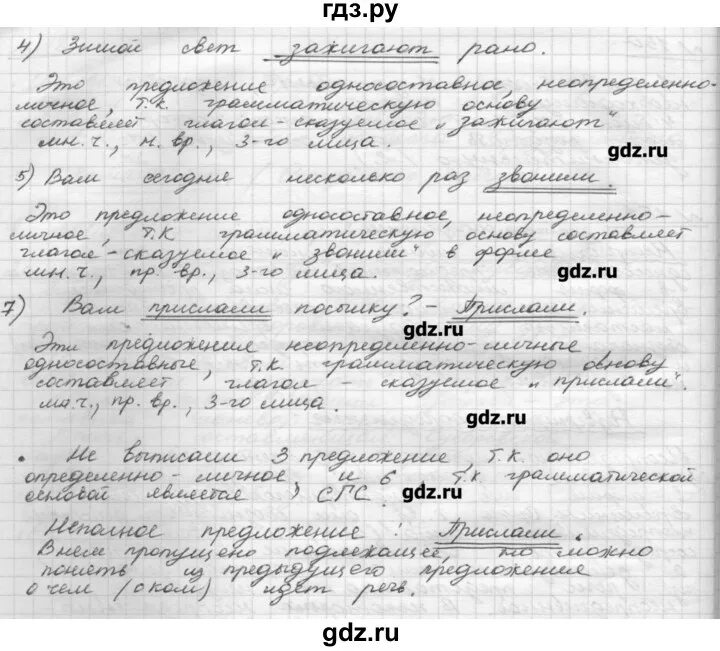 гдз.ру
4) Зимой свет зажигают рано.
Это предложение односоставное, неопределенно-
личное, т.к. грамматическую основу
составляет глагол-сказуемое "зажигают"
мн.ч., н.вр., 3-го лица.
gdz.ru
5) Вам сегодня несколько раз звонили.
Это предложение односоставное, неопределенно-
личное, т.к грамматическую основу составляет
глагол-сказуемое "звонили" в форме
мн.ч., пр.вр., 3-го лица.
gdz.ru
7) Вам прислали посылку? - Прислали.
gdz.ru
Эти предложение неопределенно-личные
односоставные, т.к. грамматическую основу
составляет глагол - сказуемое "прислали".
мн.ч., пр.вр., 3-го лица.
gdz.ru
. Не выписали 3 предложение, т.к. оно
определенно-личное, и 6, т.к грамматической
основой является СГС.
gdz.ru
Неполное предложение: Прислали.
В нем пропущено подлежащее, но можно
понять из предыдущего предложения
о чем (о ком) идет речь.
gdz.ru
gdz.ru